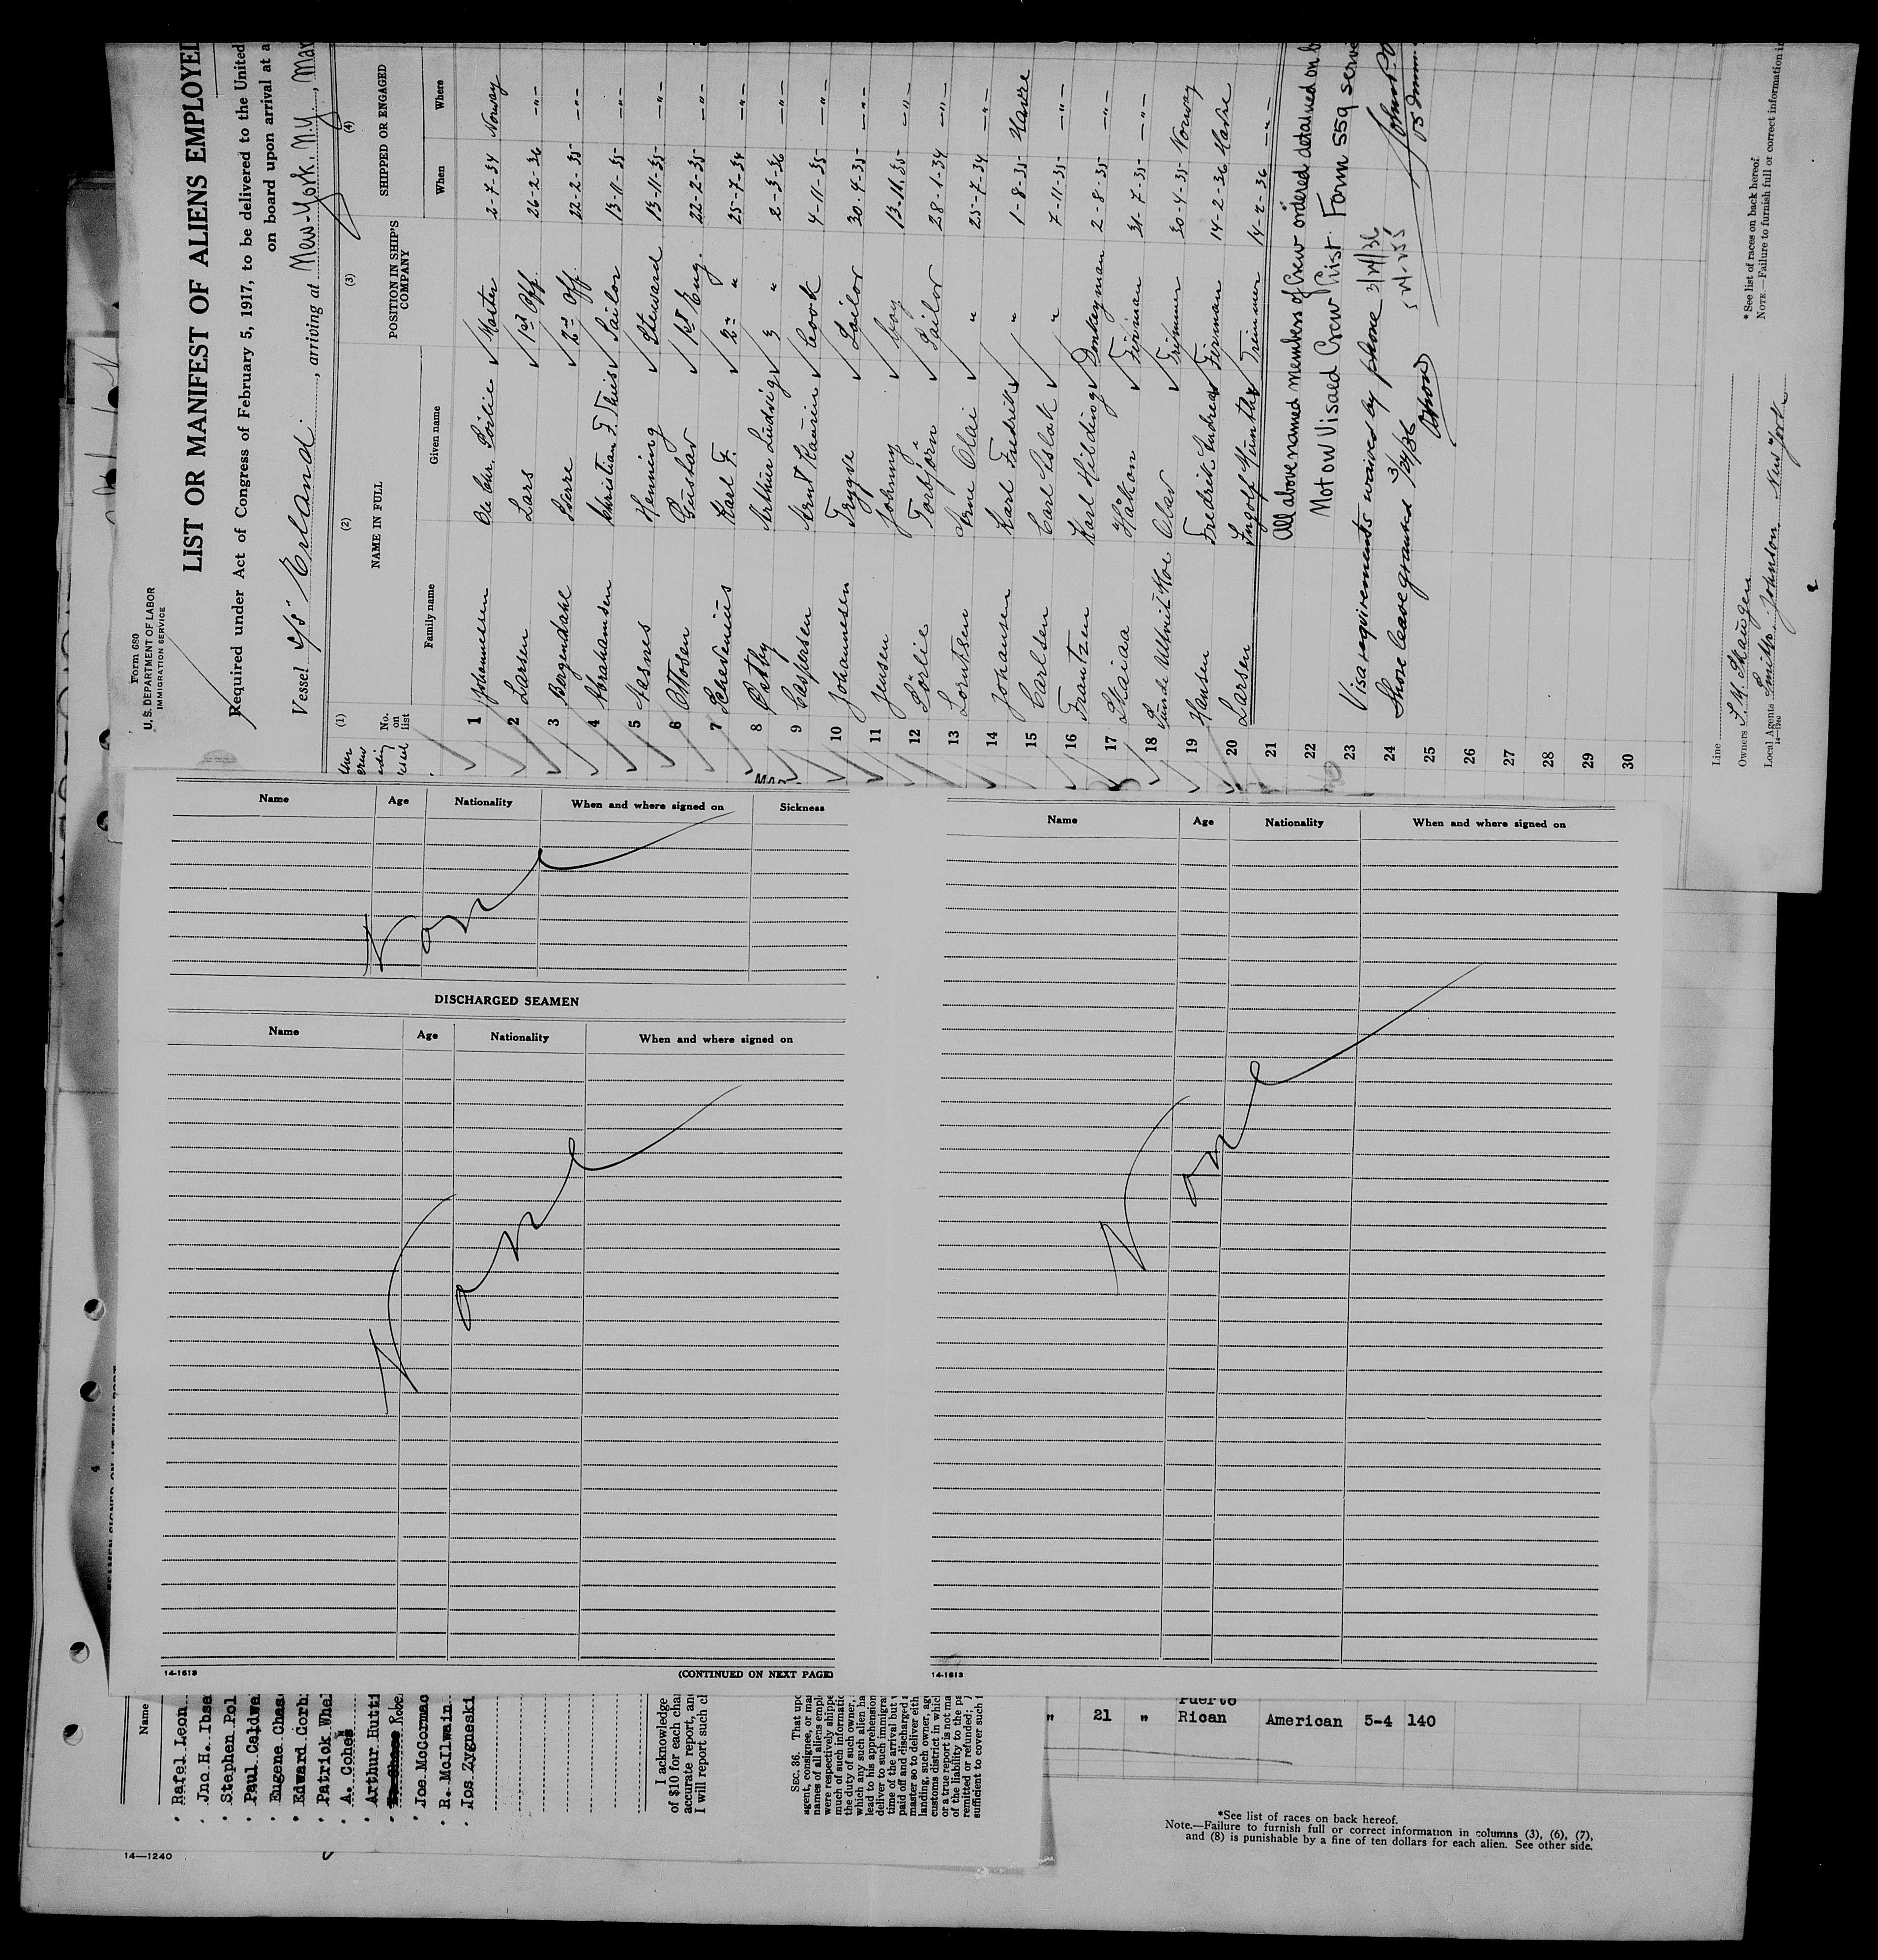 Form 680
U. S. DEPARTMENT OF LABOR
IMMIGRATION SERVICE
LIST OR MANIFEST OF ALIENS EMPLOYED
Required under Act of Congress of February 5, 1917, to be delivered to the United
on board upon arrival at a
Vessel s/s Erland, arriving at New-York, N.Y., Mar
(1) (2) (3) (4)
No. on list NAME IN FULL POSITION IN SHIP'S COMPANY SHIPPED OR ENGAGED
Family name Given name When Where
1 Johannessen Ole Chr. Master 2-7-34 Norway
2 Larsen Lars 1st Off. 26-2-36 -"-
3 Bergendahl Sverre 2nd Off. 22-2-35 -"-
4 Abrahamsen Christian F. Thiis Sailor 13-11-35 -"-
5 Henning Steward 13-11-35 -"-
6 Ottosen Gustav 1st Eng. 22-2-35 -"-
7 Karl F. 2nd " 25-7-34 -"-
8 Arthur Ludvig 3 " 2-3-36 -"-
9 Caspersen Arnt Cook 4-11-35 -"-
10 Johannesen Trygve Sailor 30-4-35 -"-
11 Jensen Johnny boy 13-11-35 -"-
12 Torbjörn Sailor 28-1-34 -"-
13 Lorntsen Arne Olai " 25-7-34 -"-
14 Johansen Karl Fredrik " 1-8-35 Havre
15 Carlsen Carl Aslak " 7-11-35 -"-
16 Frantzen Karl Hilding Donkeyman 2-8-35 -"-
17 Håkon Firman 31-7-35 -"-
18 Olav Trimmer 30-4-35 Norway
19 Hansen Fredrik Andreas Firman 14-2-36 Havre
20 Larsen Ingolf Trimmer 14-2-36 -"-
21
22
23
24
25
26
27
28
29
30
All above named members of crew ordered detained on b
Not on Visaed Crew List. Form 559 serve
Visa requirements waived by phone 3/24/36
Shore leave granted 3/24/36
Line
Owners
Local Agents Smith & Johnson New York
14—1240
* See list of races on back hereof.
NOTE.—Failure to furnish full or correct information in
Name Age Nationality When and where signed on Sickness
None
DISCHARGED SEAMEN
Name Age Nationality When and where signed on
None
14-1613
(CONTINUED ON NEXT PAGE)
Name Age Nationality When and where signed on
None
14-1613
Name
Rafel Leon
Jno H. Ibse
Stephen Pol
Paul Caldwe
Eugene Chas
Edward Corb
Patrick Whe
A. Cohen
Arthur Hutt
Joe McCormac
R. McIlwain
Jos. Zygneski
I acknowledge
of $10 for each
accurate report, an
I will report such
SEC. 36. That upo
agent, consignee, or ma
names of all aliens empl
were respectively shippe
much of such informatio
the duty of such owner,
which any such alien ha
lead to his apprehension
deliver to such immigra
time of the arrival but
paid off and discharged
master so to deliver eith
landing, such owner, ag
customs district in which
or a true report is not ma
of the liability to the pa
remitted or refunded;
sufficient to cover such
14—1240
" 21 " Puerto Rican American 5-4 140
*See list of races on back hereof.
Note.—Failure to furnish full or correct information in columns (3), (6), (7),
and (8) is punishable by a fine of ten dollars for each alien. See other side.